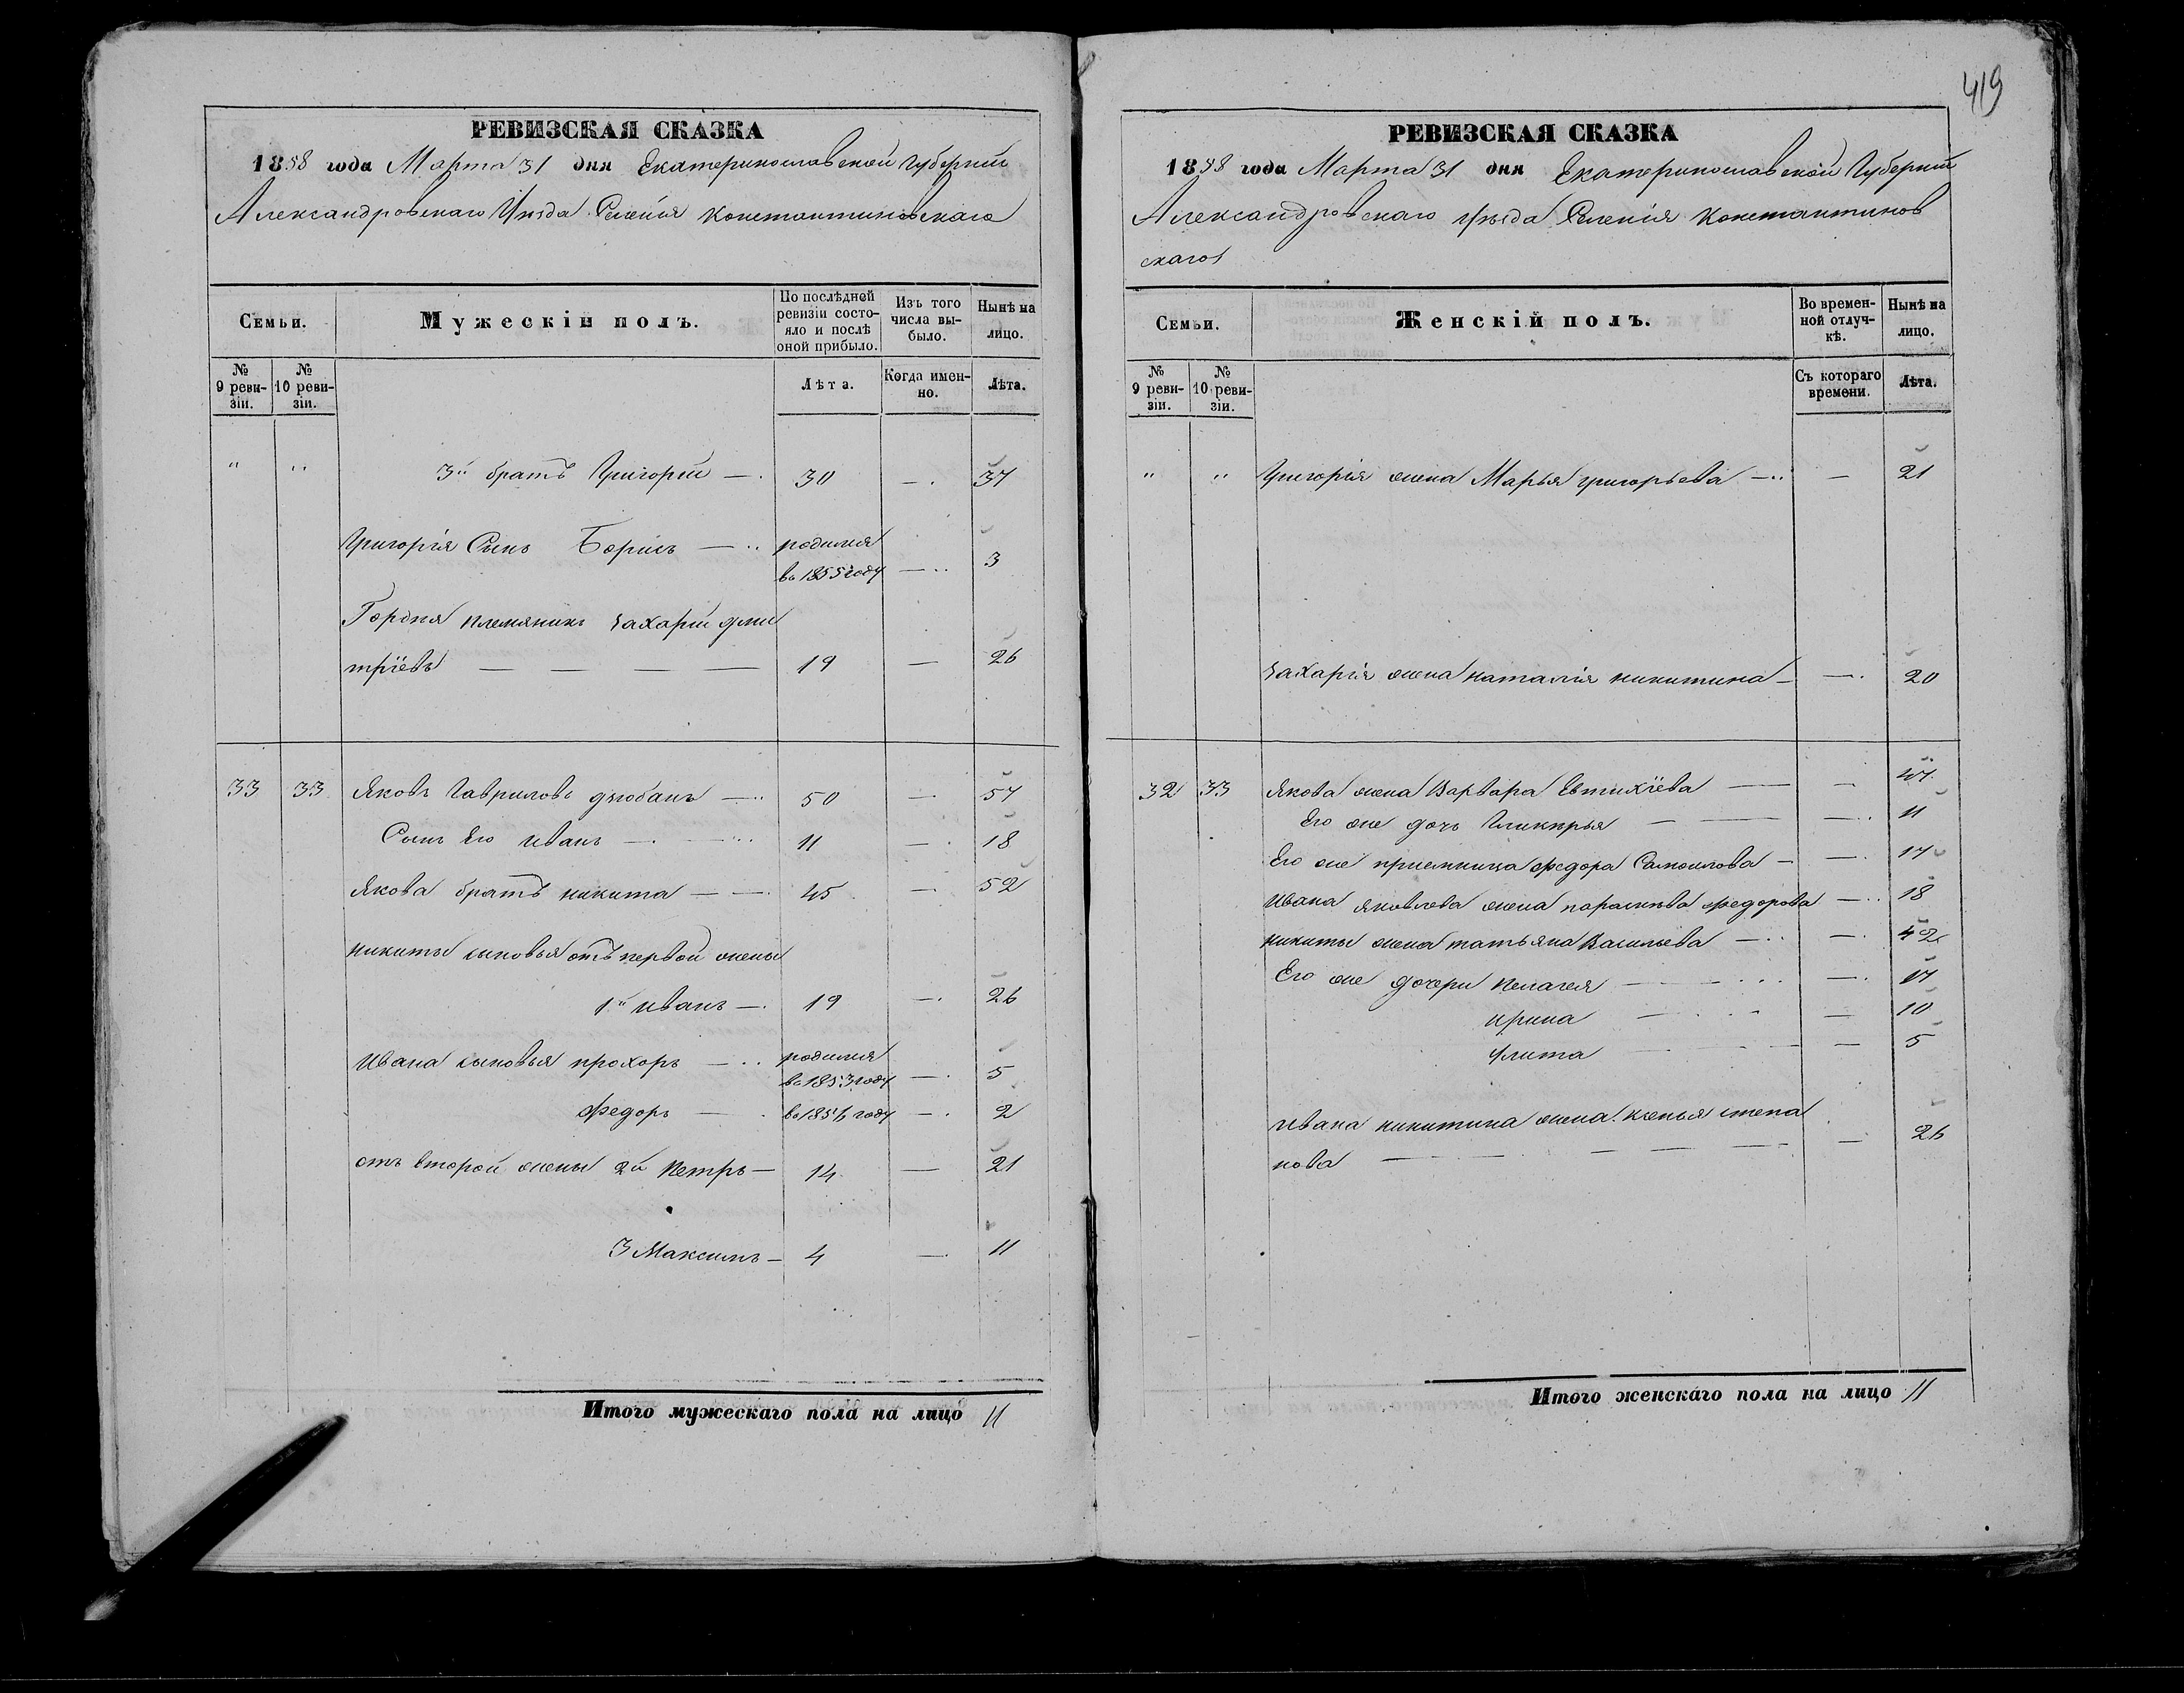 РЕВИЗСКАЯ СКАЗКА
1858 года Марта 31 дня Екатеринославской Губерніи
Александровскаго Уѣзда Селенія Константиновскаго
Семьи.
Мужескій полъ.
По послѣдней ревизіи состояло и послѣ оной прибыло.
Изъ того числа выбыло.
Нынѣ на лицо.
№ 9 ревизіи.
№ 10 ревизіи.
Лѣта.
Когда именно.
Лѣта.
" " 3й братъ Григорій — 30 — 37
Григорія Сынъ Борисъ — родился
въ 1855 году — 3
Гордѣя племяникъ Захарій Дми
тріевъ — 19 — 26
33 33 Яковъ Гавриловъ Дзюбанъ — 50 — 57
Сынъ Его Иванъ — 11 — 18
Якова братъ Никита — 45 — 52
Никиты сыновья отъ первой жены
1й Иванъ — 19 — 26
Ивана сыновья Прохоръ — родился
въ 1853 году — 5
Федоръ — въ 1856 году — 2
отъ второй жены 2й Петръ — 14 — 21
3 Максимъ — 4 — 11
Итого мужескаго пола на лицо 11
419
РЕВИЗСКАЯ СКАЗКА
1858 года Марта 31 дня Екатеринославской Губерніи
Александровскаго Уѣзда Селенія Константинов
скаго
Семьи.
Женскій полъ.
Во временной отлучкѣ.
Нынѣ на лицо.
№ 9 ревизіи.
№ 10 ревизіи.
Съ котораго времени.
Лѣта.
" " Григорія жена Марья Григорьева — — 21
Захарія жена Наталія Никитина — — 20
32 33 Якова жена Варвара Евтихіева — — 47
Его же дочь Гликирья — — 11
Его же приемница Федора Самоилова — — 17
Ивана Яковлева жена Параскева Федорова — 18
Никиты жена Татьяна Васильева — — 42
Его же дочери Пелагея — — 17
Ирина — — 10
Улита — — 5
Ивана Никитина жена Ксенья Степа
нова — — 26
Итого женскаго пола на лицо 11